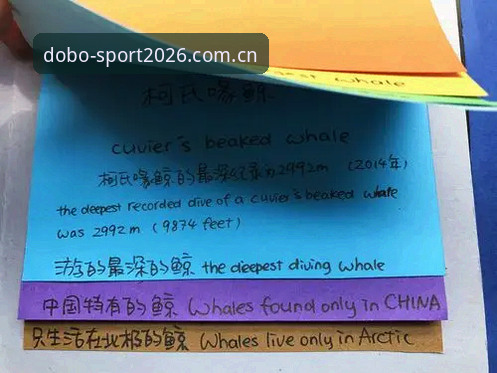 dobo-sport2026.com.cn
whale
柯氏喙鲸
cuvier's beaked whale
柯氏喙鲸的最深纪录为2992m （2014年）
the deepest recorded dive of a cuvier's beaked whale
was 2992m (9874 feet)
游的最深的鲸 the deepest diving whale
中国特有的鲸 Whales found only in CHINA
只生活在北极的鲸 Whales live only in Arctic